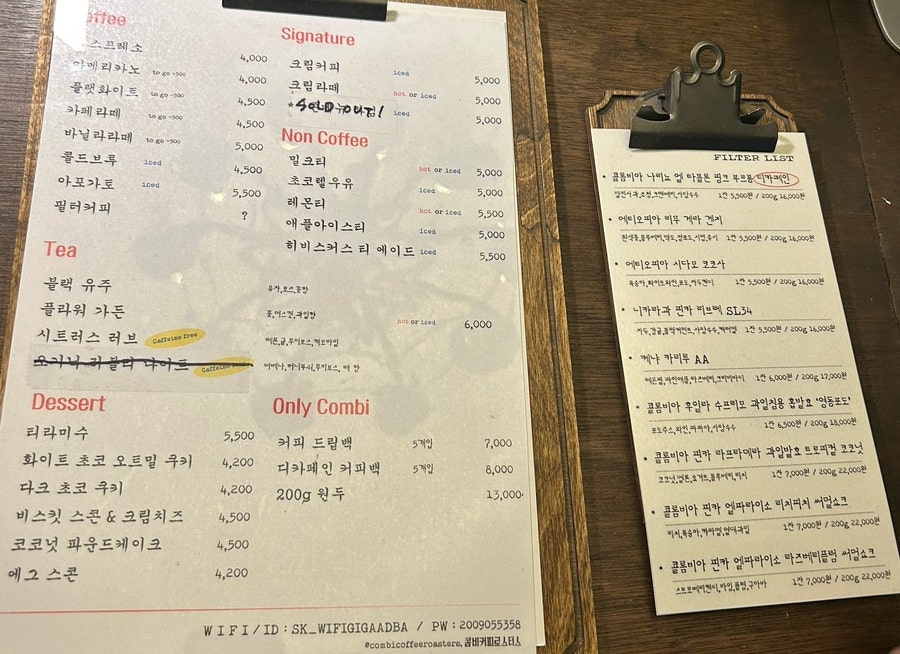 ffee
스프레소 4,000
아메리카노 to go -500 4,000
플랫화이트 to go -500 4,500
카페라떼 to go -500 4,500
바닐라라떼 to go -500 5,000
콜드브루 iced 4,500
아포가토 iced 5,500
필터커피 ?
Tea
블랙 유주 유자,로즈,꽃향
플라워 가든 꽃,머스캣,과일향
hot or iced 6,000
시트러스 러브 Caffeine free 레몬,귤,루이보스,캐모마일
Caffeine 버베나,허니부쉬,루이보스,
Dessert
티라미수 5,500
화이트 초코 오트밀 쿠키 4,200
다크 초코 쿠키 4,200
비스킷 스콘 & 크림치즈 4,500
코코넛 파운드케이크 4,500
에그 스콘 4,200
Signature
크림커피 iced 5,000
크림라떼 hot or iced 5,000
iced 5,000
Non Coffee
밀크티 hot or iced 5,000
초코렐우유 iced 5,000
레몬티 hot or iced 5,500
애플아이스티 iced 5,000
히비스커스 티 에이드 iced 5,500
Only Combi
커피 드립백 5개입 7,000
디카페인 커피백 5개입 8,000
200g 원두 13,000~
WIFI/ID:SK_WIFIGIGAADBA / PW:2009055358
@combicoffeeroasters, 콤비커피로스터스
FILTER LIST
• 콜롬비아 나리뇨 엘 타블론 핑크 부르봉 디카페인
1잔 5,500원 / 200g 16,000원
• 에티오피아 리무 게라 겐지
1잔 5,500원 / 200g 16,000원
• 에티오피아 시다모 코코사
복숭아,화이트와인,포도,자두캔디 1잔 5,500원 / 200g 16,000원
• 니카라과 핀카 리브레 SL34
1잔 5,500원 / 200g 16,000원
• 케냐 카리루 AA
1잔 6,000원 / 200g 17,000원
• 콜롬비아 후일라 수프리모 과일침용 홉발효 '영동포도'
포도주스,와인,파파야,사탕수수 1잔 6,500원 / 200g 18,000원
• 콜롬비아 핀카 라프라데라 과일발효 트로피컬 코코넛
코코넛,멜론,요거트,블루베리,리치 1잔 7,000원 / 200g 22,000원
• 콜롬비아 핀카 엘파라이소 리치피치 써멀쇼크
리치,복숭아,카라멜,열대과일 1잔 7,000원 / 200g 22,000원
• 콜롬비아 핀카 엘파라이소 라즈베리플럼 써멀쇼크
스트로베리캔디,라임,플럼,구아바 1잔 7,000원 / 200g 22,000원